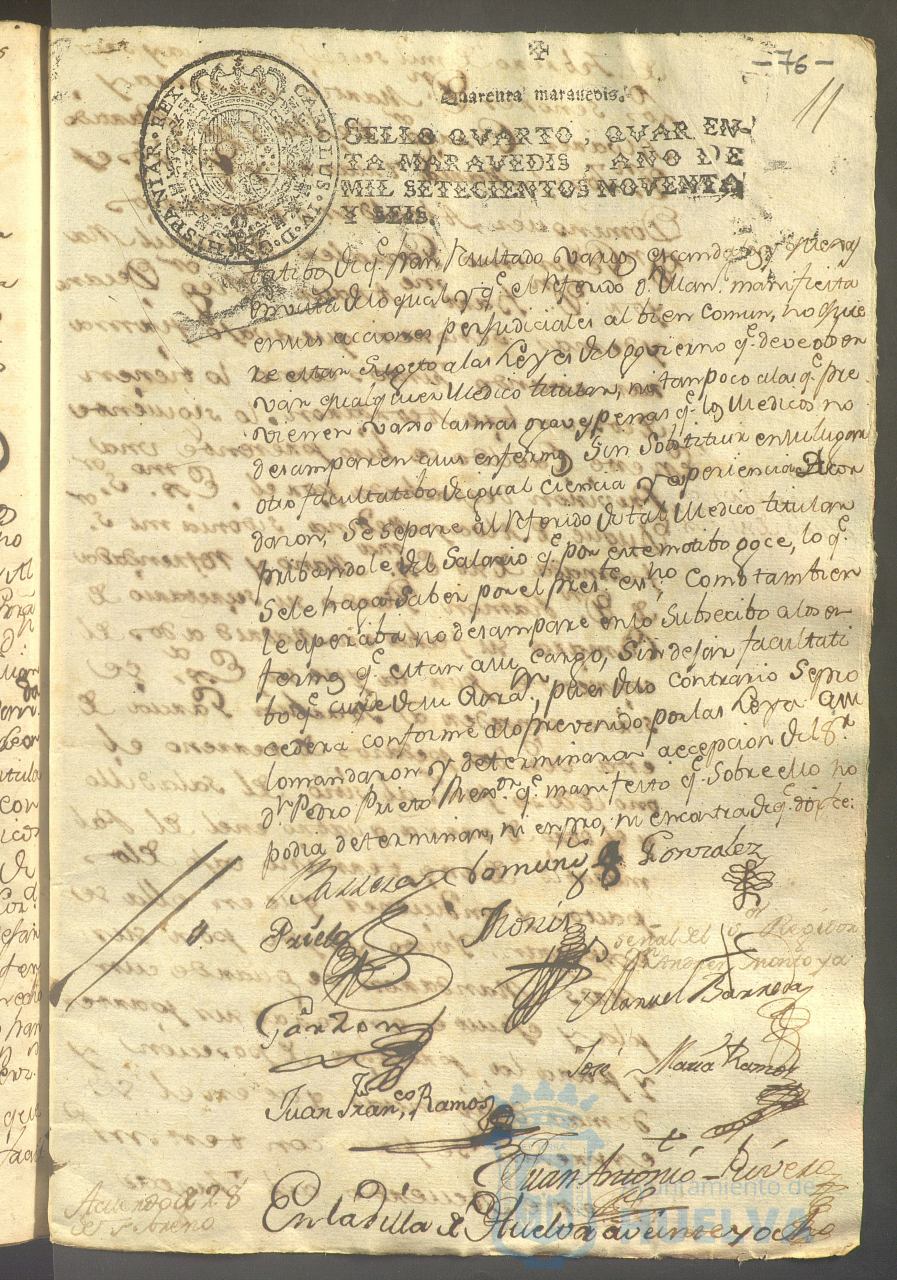 -76-
11
Quarenta marauedis.
SELLO QVARTO, QVAREN-
TA MARAVEDIS, AÑO DE
MIL SETECIENTOS NOVENTA
Y SEIS.
CAROLUS IV D G HISPANIAR REX
tatibo de q.e han resultado varios
en vista de lo qual y q.e el referido d.n Man.l manifiesta
en sus acciones perjudiciales al bien comun, no quie
re estar sugeto a las Leyes del govierno q.e deve obser
var qualquier Medico titular, ni tampoco a las q.e pre
vienen vajo las mas graves penas q.e los Medicos no
desamparen a sus enfermos sin sostituir en su lugar
otro facultatibo de igual ciencia y esperiencia Acor
daron, se separe al referido de tal Medico titular
pribandole del Salario q.e por este motibo goce, lo q.e
se le haga saber por el pres.te es.no como tambien
le aperciba no desampare en lo subsecibo a los en
fermos q.e estan a su cargo, sin dejar facultati
bo q.e cuide de su Cura.n, pues de lo contrario se pro
cedera conforme a lo prevenido por las Leyes Assi
lo mandaron y determinaron a ecepcion del S.r
d.n Pedro Prieto q.e manifesto q.e sobre ello no
podia determinar, ni en pro, ni en contra de q.e doy fe:
Barrera Gonzalez
Prieto
señal del S.or Regidor
Andres Montoya
Manuel Barreda
Garzon
José Maria Ramos
Juan Fran.co Ramos
Juan Antonio Rivero
Acuerdo de 28
de Febrero
En la Villa de Huelva a veinte y ocho
Ayuntamiento de
HUELVA